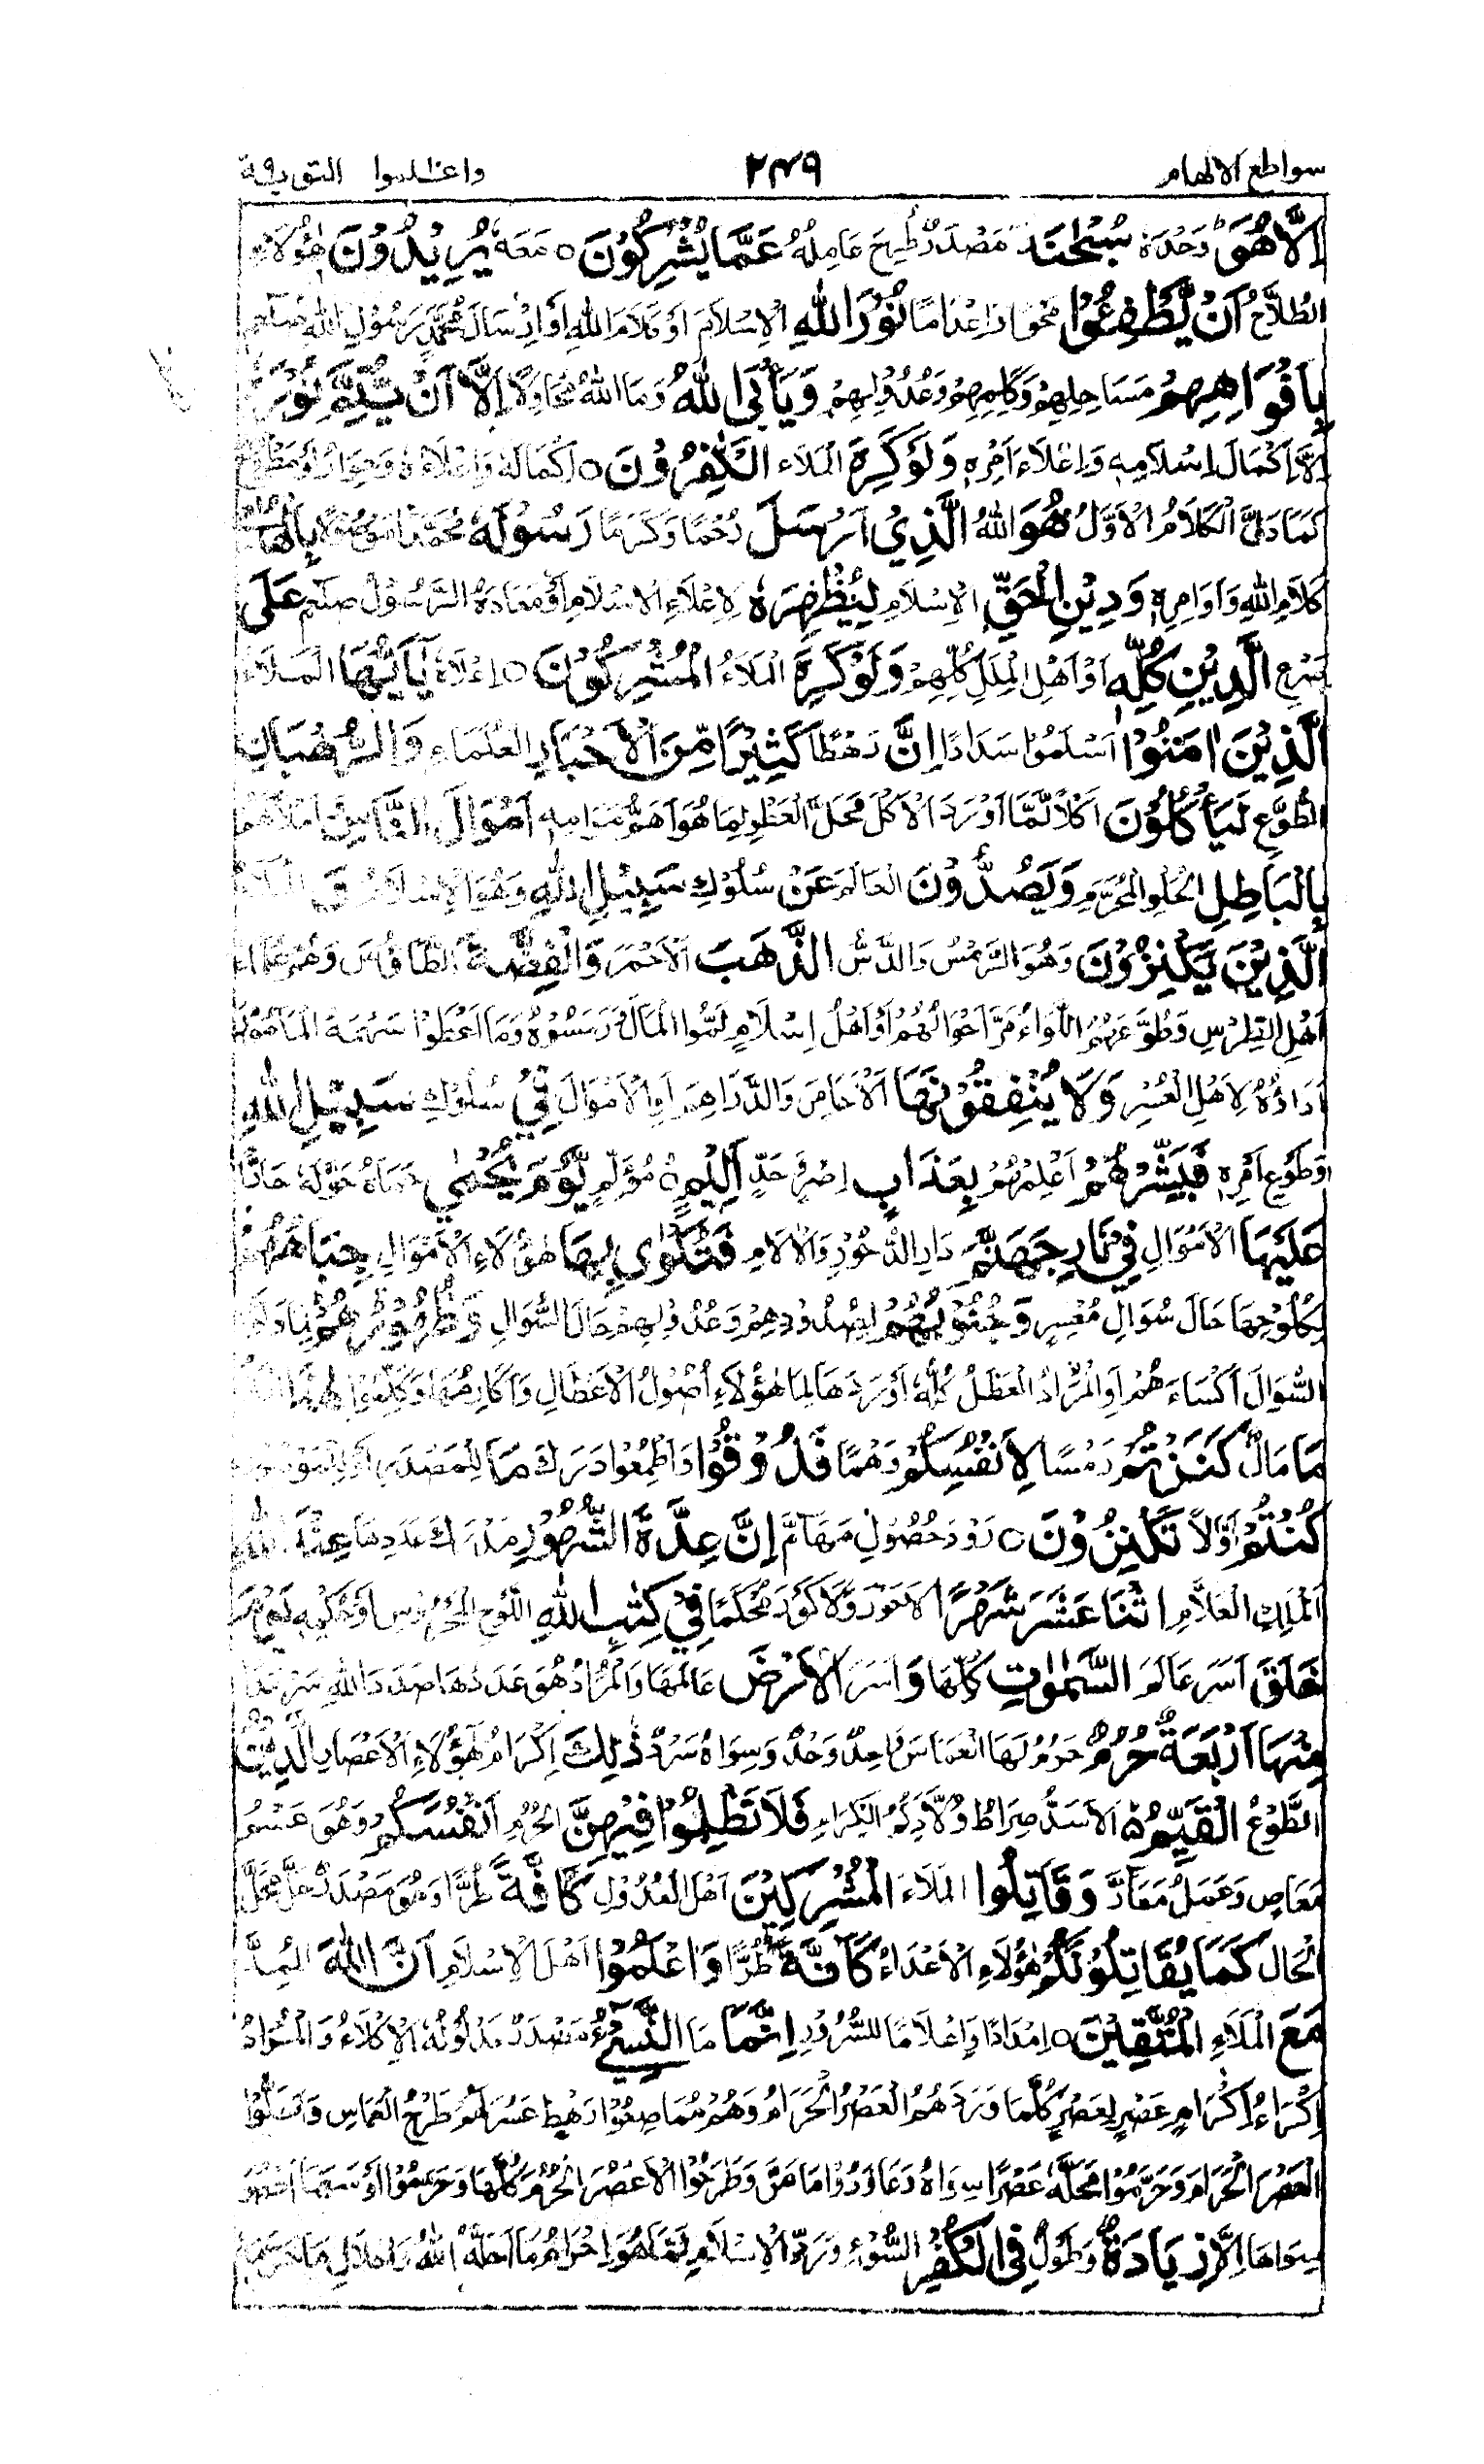 سواطع الالهام ۲۴۹ واعلموا التوبة ۹
اِلَّا هُوَ وَحْدَهٗ سُبْحٰنَهٗ مَصْدَرٌ طُرِحَ عَامِلُهٗ عَمَّا يُشْرِكُوْنَ ○ مَعَهٗ يُرِيْدُوْنَ هٰؤُلَاءِ
الطُّلَّاحُ اَنْ يُّطْفِـُٔوْا مَحْوًا وَاِعْدَامًا نُوْرَ اللهِ الْاِسْلَامَ اَوْ كَلَامَ اللهِ اَوْ اِرْسَالَ مُحَمَّدٍ رَسُوْلِ اللهِ صلعم
بِاَفْوَاهِهِمْ مَسَاحِلِهِمْ وَكَلِمِهِمْ وَعُدُوْلِهِمْ وَيَاْبَى اللهُ وَمَا اللهُ مُحَاوِلًا اِلَّا اَنْ يُّتِمَّ نُوْرَهٗ
اِلَّا اِكْمَالَ اِسْلَامِهٖ وَاِعْلَاءَ اَمْرِهٖ وَلَوْ كَرِهَ الْمَلَاء الْكٰفِرُوْنَ ○ اِكْمَالَهٗ وَاِعْلَاءَهٗ وَحِوَارُ لَوْ مَطْرُوْحٌ
كَمَا دَلَّ الْكَلَامُ الْاَوَّلُ هُوَ اللهُ الَّذِيْ اَرْسَلَ رُحْمًا وَكَرَمًا رَسُوْلَهٗ مُحَمَّدًا بِالْهُدٰى
كَلَامِ اللهِ وَاَوَامِرِهٖ وَدِيْنِ الْحَقِّ الْاِسْلَامِ لِيُظْهِرَهٗ لِاِعْلَاءِ الْاِسْلَامِ اَوْ مَعَادُهُ الرَّسُوْلُ صلعم عَلَى
الدِّيْنِ كُلِّهٖ اَوْ اَهْلِ الْمِلَلِ كُلِّهِمْ وَلَوْ كَرِهَ الْمَلَاءُ الْمُشْرِكُوْنَ ○ اِعْلَاءَهٗ يٰاَيُّهَا الْمَلَاءُ
الَّذِيْنَ اٰمَنُوْا اَسْلَمُوْا سَدَادًا اِنَّ رَهْطًا كَثِيْرًا مِّنَ الْاَحْبَارِ الْعُلَمَاءِ وَالرُّهْبَانِ
الطُّوَّعِ لَيَاْكُلُوْنَ اَكْلًا لَّمَّا اَوْرَدَ الْاَكْلَ مَحَلَّ الْعَطْوِ لِمَا هُوَ اَهَمُّ مَرَامِهٖ اَمْوَالَ النَّاسِ اَمْلَاكَهُمْ
بِالْبَاطِلِ الْحُلْوِ الْمُحَرَّمِ وَيَصُدُّوْنَ الْعَالَمَ عَنْ سُلُوْكِ سَبِيْلِ اللهِ وَهُوَ الْاِسْلَامُ وَ الْمَلَاءُ
الَّذِيْنَ يَكْنِزُوْنَ وَهُوَ الرَّمْسُ وَالدَّسُّ الذَّهَبَ الْاَحْمَرَ وَالْفِضَّةَ الطَّاؤُسَ وَهُمْ عُلَمَاءُ
اَهْلِ الطِّرْسِ وَطُوَّعُهُمُ اللَّاوَاءُ مَرَّ اَحْوَالُهُمْ اَوْ اَهْلُ اِسْلَامٍ لَمُّوا الْمَالَ وَرَمَسُوْهُ وَمَا اَعْطَوْا سَهْمَهُ الْمَامُوْرَ
اَدَاؤُهٗ لِاَهْلِ الْعُسْرِ وَلَا يُنْفِقُوْنَهَا الْاَحَامِرَ وَالدَّرَاهِمَ اَوِ الْاَمْوَالَ فِيْ سُلُوْكِ سَبِيْلِ اللهِ
وَطَوْعِ اَمْرِهٖ فَبَشِّرْهُمْ اَعْلِمْهُمْ بِعَذَابٍ اِصْرٍ وَحَدٍّ اَلِيْمٍ ○ مُؤْلِمٍ يَّوْمَ يُحْمٰى حَمَاهُ حَوَّلَهٗ حَارًّا
عَلَيْهَا الْاَمْوَالِ فِيْ نَارِ جَهَنَّمَ دَارِ الدُّحُوْرِ وَالْاٰلَامِ فَتُكْوٰى بِهَا هٰؤُلَاءِ الْاَمْوَالِ جِبَاهُهُمْ
لِكُلُوْحِهَا حَالَ سُوَالِ مُعْسِرٍ وَجُنُوْبُهُمْ لِصُدُوْدِهِمْ وَعُدُوْلِهِمْ حَالَ السُّوَالِ وَظُهُوْرُهُمْ
السُّوَالَ اَكْسَاءَهُمْ اَوِ الْمُرَادُ الْعَطَلُ كُلُّهٗ اَوْرَدَهَا لِمَا هٰؤُلَاءِ اُصُوْلُ الْاَعْطَالِ وَاَكَارِمُهَا
مَا مَالٌ كَنَزْتُمْ رَمْسًا لِاَنْفُسِكُمْ وَهْمًا فَذُوْقُوْا وَاطْعَمُوْا دَرَكَ مَا لِلْمَصْدَرِ
كُنْتُمْ اَوَّلًا تَكْنِزُوْنَ ○ اِنَّ عِدَّةَ الشُّهُوْرِ مُدْرَكَ عَدَدِهَا عِنْدَ اللهِ
الْمَلِكِ الْعَلَّامِ اثْنَا عَشَرَ شَهْرًا لَا حَوْرَ وَلَا كَوْرَ مُحْكَمًا فِيْ كِتٰبِ اللهِ اللَّوْحِ الْمَحْرُوْسِ اَوْ حُكْمِهٖ يَوْمَ
خَلَقَ اَسَرَ عَالَمَ السَّمٰوٰتِ كُلِّهَا وَاَسَرَ الْاَرْضَ عَالَمَهَا وَالْمُرَادُ هُوَ عَدَدُهَا صَدَدَ اللهِ سَرْمَدًا
مِنْهَا اَرْبَعَةٌ حُرُمٌ حَرُمَ لَهَا الْعَمَاسُ وَاحِدٌ وَحْدٌ وَسِوَاهُ سَرْدٌ ذٰلِكَ اِكْرَامُ هٰؤُلَاءِ الْاَعْصَارِ الدِّيْنُ
الطَّوْعُ الْقَيِّمُ الْاَسَدُّ صِرَاطُ وُلَّادِكُمُ الْكِرَاءِ فَلَا تَظْلِمُوْا فِيْهِنَّ الْحُرُمِ اَنْفُسَكُمْ وَهُوَ عَمَلُ
مَعَاصٍ وَعَمَلُ مَعَارٍّ وَقَاتِلُوا الْمَلَاءَ الْمُشْرِكِيْنَ اَهْلَ الْعُدُوْلِ كَآفَّةً طُرًّا وَهُوَ مَصْدَرٌ حَلَّ مَحَلَّ
الْحَالِ كَمَا يُقَاتِلُوْنَكُمْ هٰؤُلَاءِ الْاَعْدَاءُ كَآفَّةً طُرًّا وَاعْلَمُوْا اَهْلَ الْاِسْلَامِ اَنَّ اللهَ الْمُمِدَّ
مَعَ الْمَلَاءِ الْمُتَّقِيْنَ ○ اِمْدَادًا وَاِعْلَامًا لِلسُّرُوْرِ اِنَّمَا مَا النَّسِيْءُ مَصْدَرٌ مَدْلُوْلُهُ الْاِكْلَاءُ وَالْمُرَادُ
اِكْرَاءُ اِكْرَامِ عَصْرٍ لِعَصْرٍ كُلَّمَا وَرَدَهُمُ الْعَصْرُ الْحَرَامُ وَهُمْ مُمَاصِعُوْا رَهْطٍ عَسُرَ لَهُمْ طَرْحُ الْعَمَاسِ وَاَحَلُّوْا
الْعَصْرَ الْحَرَامَ وَحَرَّمُوْا مَحَلَّهٗ عَصْرًا سِوَاهُ وَعَاوَدُوْا مَا مَرَّ وَطَرَحُوا الْاَعْصُرَ الْحُرُمَ كُلَّهَا وَحَرَّمُوْا
سِوَاهَا اِلَّا زِيَادَةٌ وَطَوْلٌ فِى الْكُفْرِ السُّوْءِ وَرَدِّ الْاِسْلَامِ لِمَا هُوَ اِحْرَامُ مَا اَحَلَّهُ اللهُ وَاِحْلَالُ مَا حَرَّمَهُ